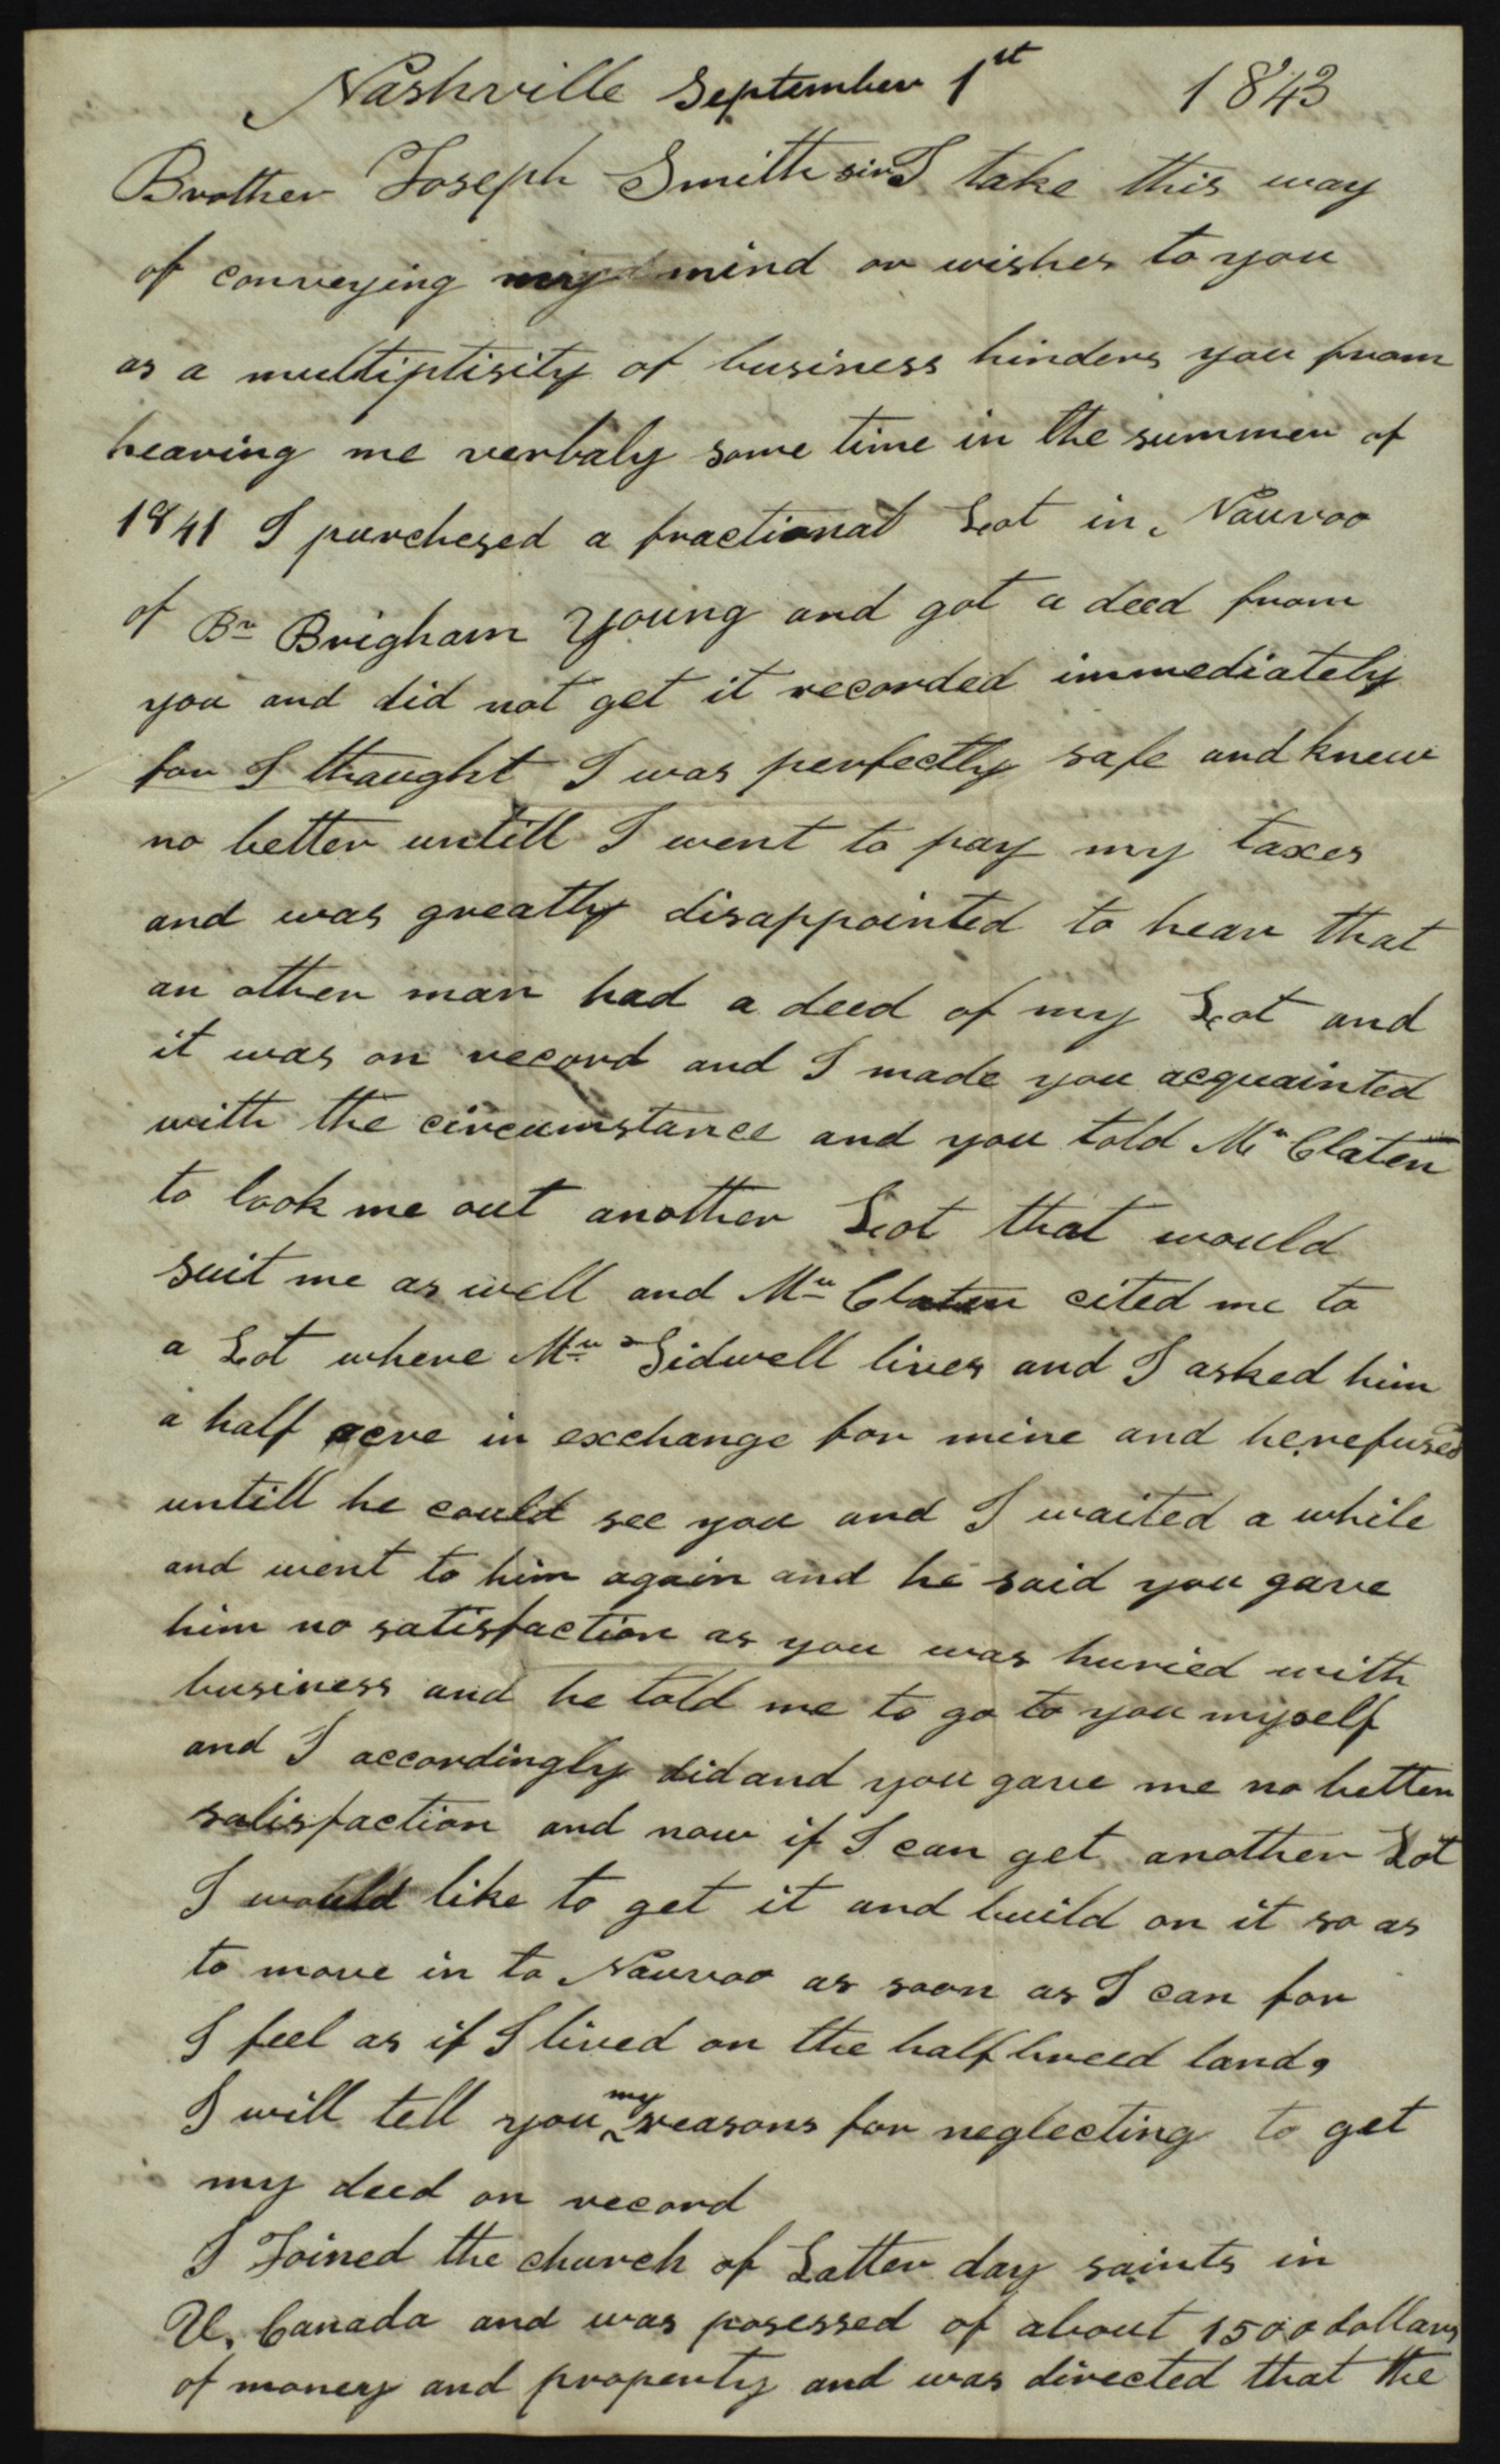 Nashville September 1st 1843
Brother Joseph Smith sir I take this way
of conveying my mind or wishes to you
as a multiptisity of business hinders you from
hearing me verbaly some time in the summer of
1841 I purchesed a fractional Lot in Nauvoo
of Br Brigham Young and got a deed from
you and did not get it recorded immediately
for I thaught I was perfectly safe and knew
no better untill I went to pay my taxes
and was greatly disappointed to hear that
an other man had a deed of my Lot and
it was on record and I made you acquainted
with the circumstance and you told Mr Claten
to look me out another Lot that would
suit me as well and Mr Claten cited me to
a Lot where Mr Sidwell lives and I asked him
a half acre in exchange for mine and he refused
untill he could see you and I waited a while
and went to him again and he said you gave
him no satisfaction as you was huried with
business and he told me to go to you myself
and I accordingly did and you gave me no better
satisfaction and now if I can get another Lot
I would like to get it and build on it so as
to move in to Nauvoo as soon as I can for
I feel as if I lived on the half breed land,
I will tell you my reasons for neglecting to get
my deed on record
I Joined the church of Latter day saints in
U. Canada and was posessed of about 1500 dollars
of money and property and was directed that the